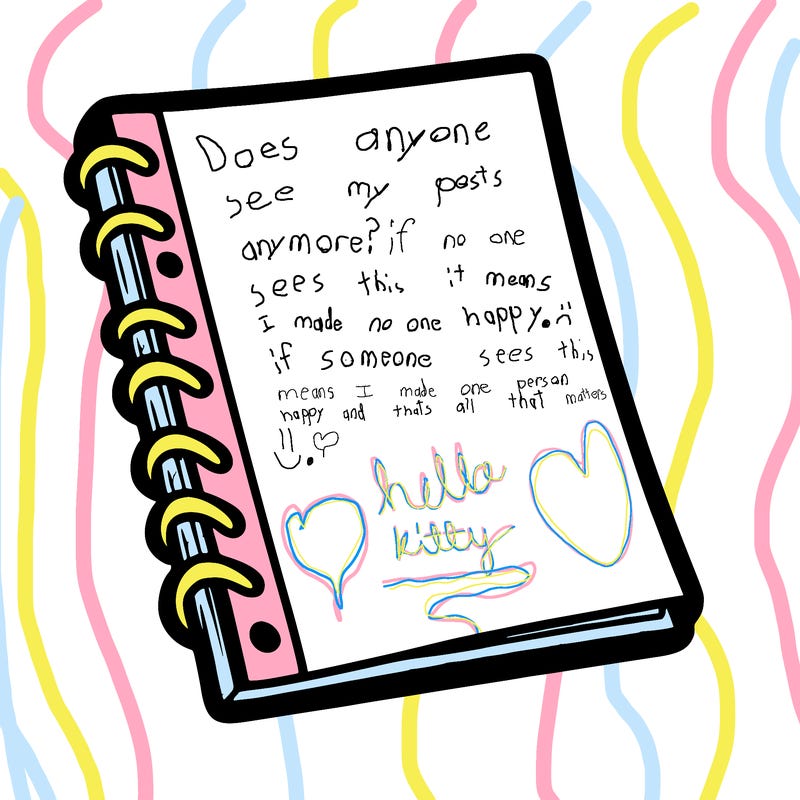 Does anyone
see my posts
anymore? if no one
sees this it means
I made no one happy. :(
if someone sees this
means I made one person
happy and thats all that matters
hello
kitty